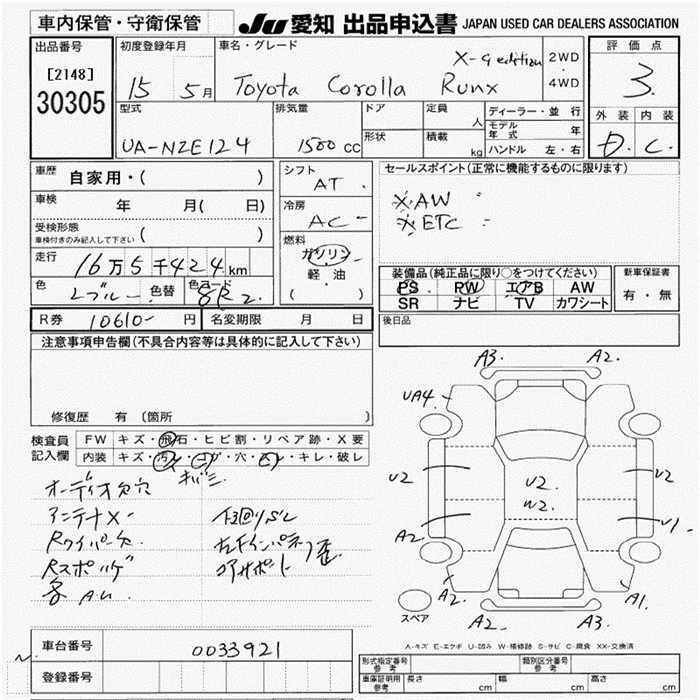 車内保管・守衛保管
JU 愛知 出品申込書 JAPAN USED CAR DEALERS ASSOCIATION
出品番号
[2148]
30305
初度登録年月
15 5月
車名・グレード
X-G edition
Toyota Corolla Runx
2WD
4WD
評価点
3
外装 内装
D. C.
型式
UA-NZE124
排気量
1500 cc
ドア
形状
定員
人
積載
kg
ディーラー・並行
モデル年式 年
ハンドル 左・右
車歴
自家用・( )
車検
年 月( 日)
受検形態
車検付きのみ記入して下さい ( )
走行
16万5千424km
色
Lブルー
色替
色コード
8R2
シフト
AT
冷房
AC
燃料
ガソリン
軽・油
( )
セールスポイント(正常に機能するものに限ります)
※AW
※ETC
装備品(純正品に限り○をつけてください)
PS PW エアB AW
SR ナビ TV カワシート
新車保証書
有・無
R券 10610- 円
名変期限 月 日
後日品
注意事項申告欄(不具合内容等は具体的に記入して下さい)
修復歴 有(箇所 )
検査員記入欄
FW キズ・飛石・ヒビ割・リペア跡・X要
内装 キズ・汚レ・コゲ・穴・スレ・キレ・破レ
オーディオ欠穴
アンテナX-
Rワイパー欠
Rスポハゲ
各AU
コアサポート
A3. A2.
UA4.
U2 U2
U2.
W2.
A2 U1
A2 A2 A3 A1
スペア
A-キズ E-エクボ U-凹み W-補修跡 S-サビ C-腐食 XX-交換済
車台番号
0033921
登録番号
形式指定番号 参考
類別区分番号 参考
車庫証明用 参考
長さ cm
幅 cm
高さ cm